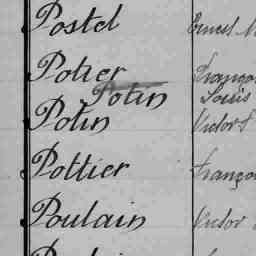 Postel Ernest
Potier François
Potin Louis
Potin Victor
Pottier François
Poulain Victor